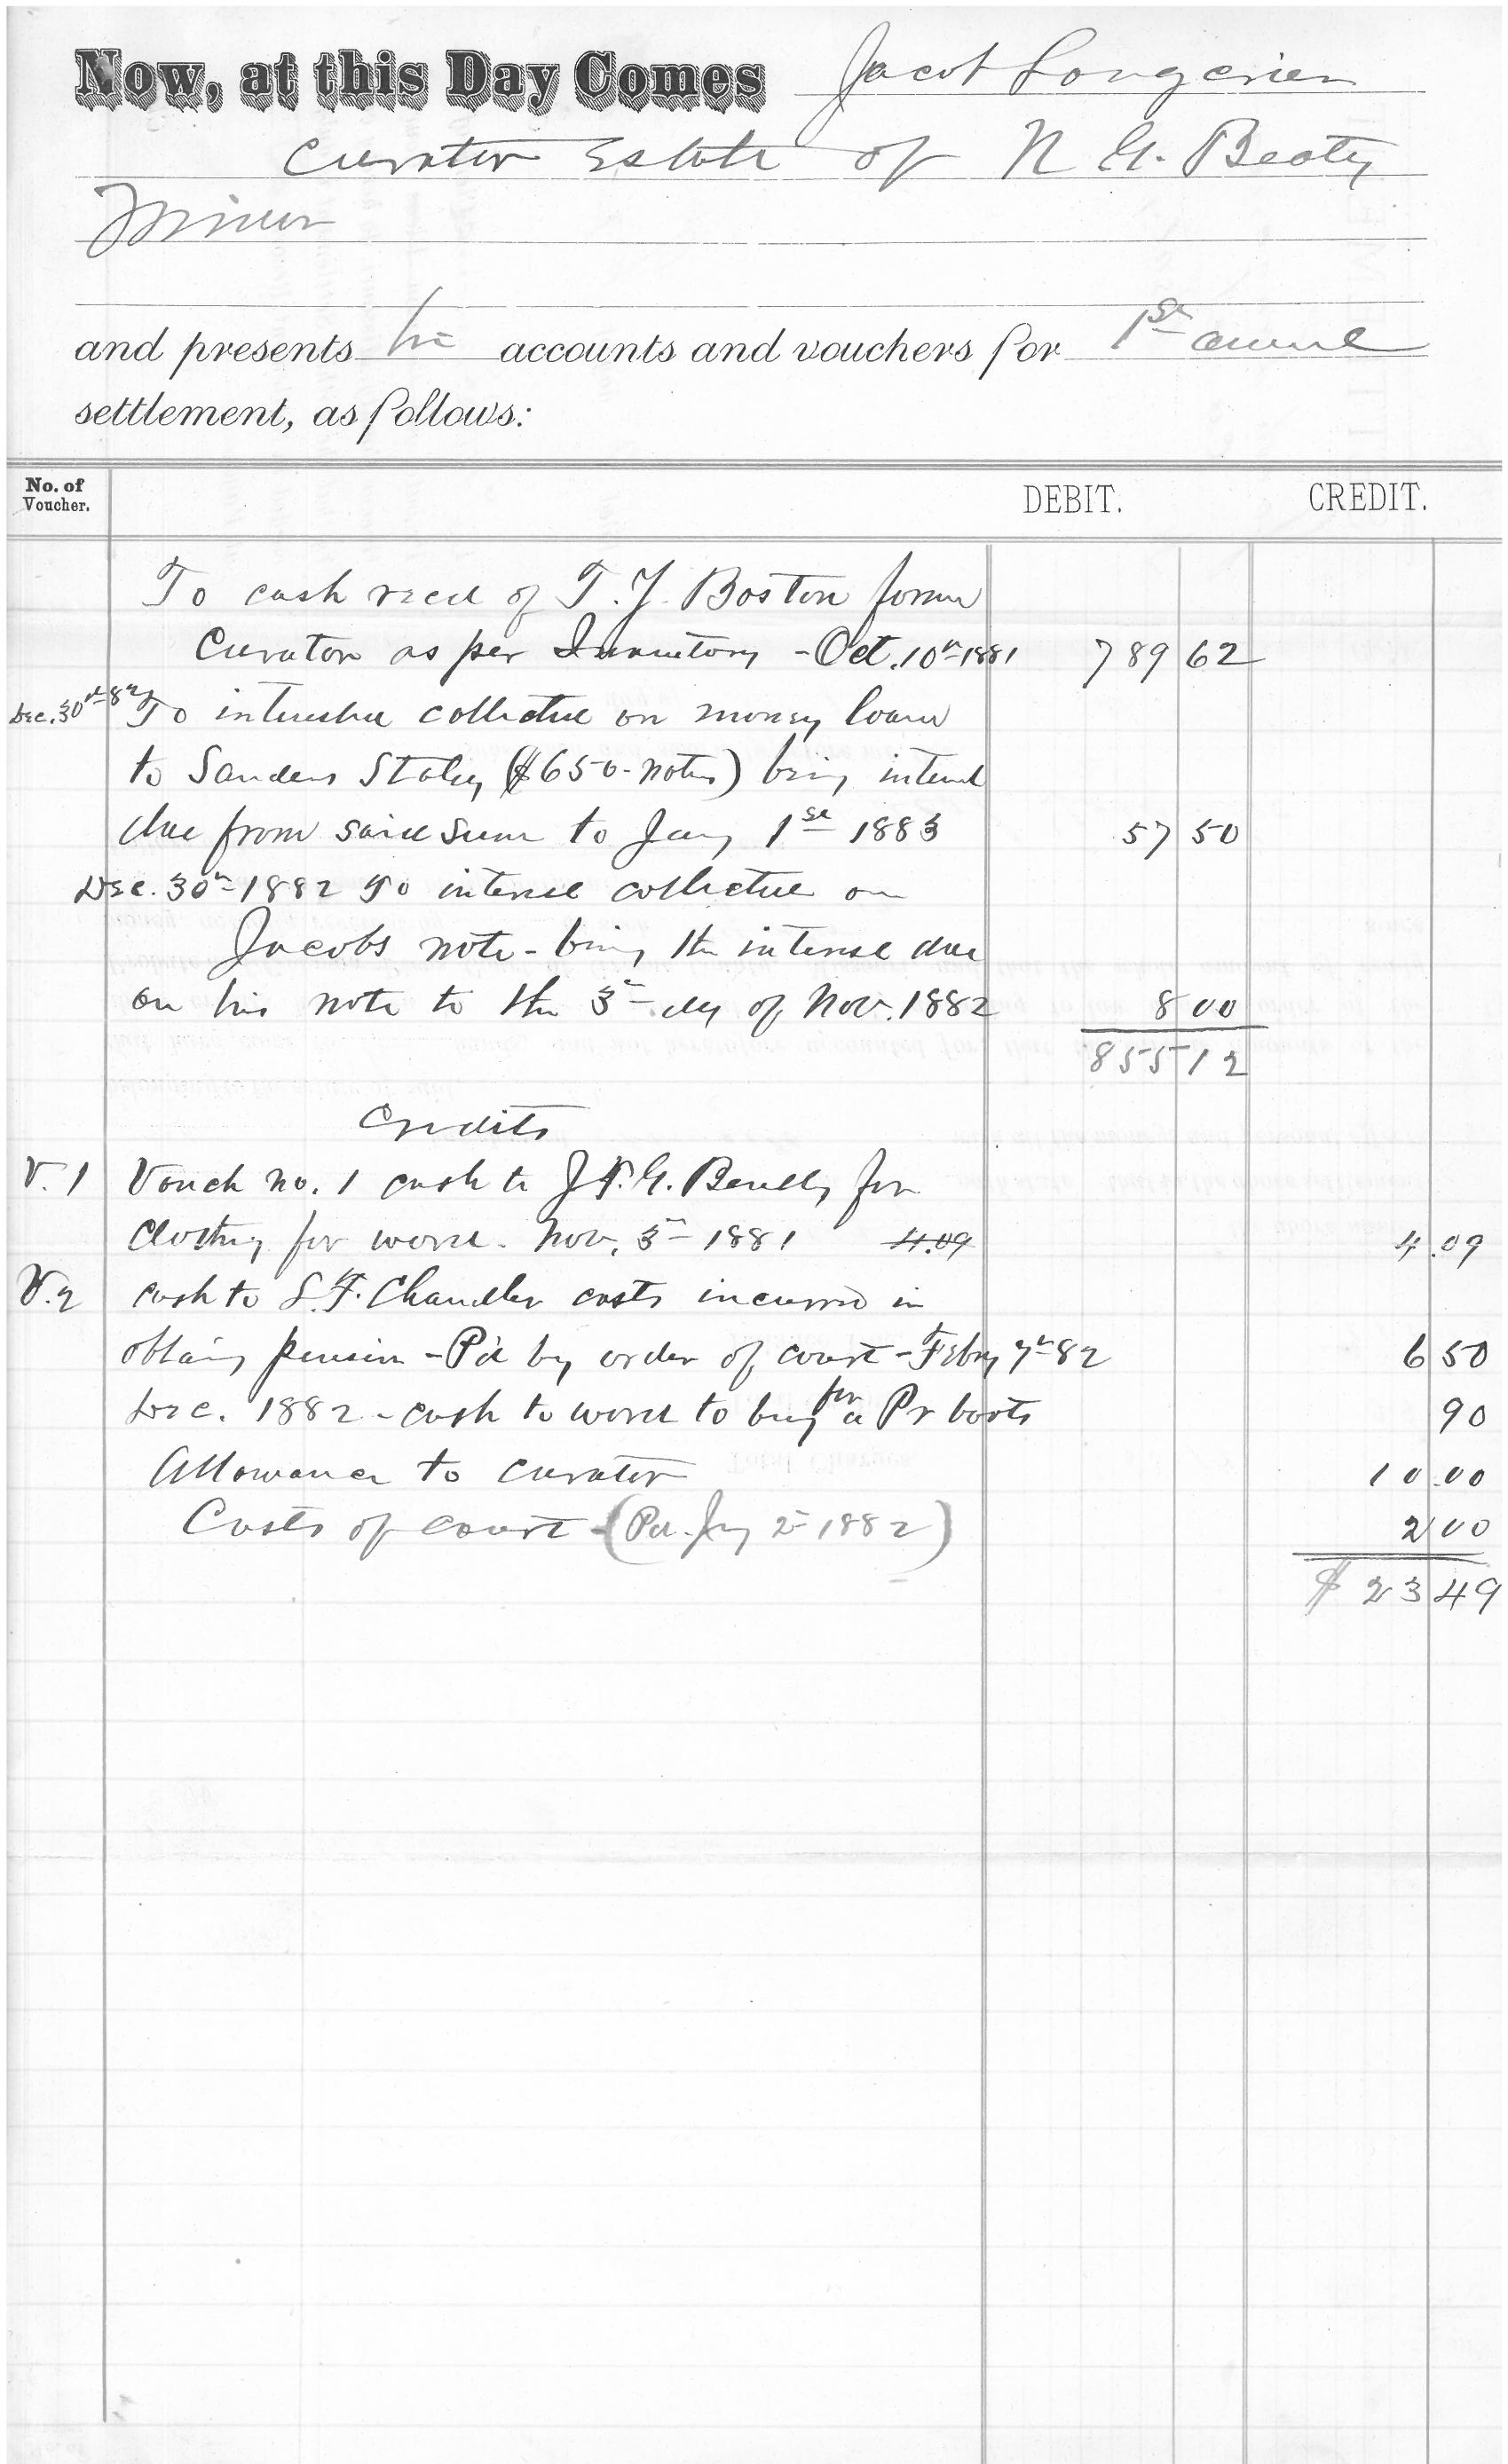 Now, at this Day Comes Jacob Longcrier
Curator Estate of N G. Beaty
Minor
and presents his accounts and vouchers for 1st annual
settlement, as follows:
No. of Voucher. DEBIT. CREDIT.
To cash recd of T. J. Boston former
Curator as per Inventory - Oct. 10th 1881 789 62
Dec. 30th 82 To interest collected on money loand
to Sanders Staley ($650 - notes) being interest
due from said sum to Jany 1st 1883 57 50
Dec. 30th 1882 To interest collected on
Jacobs note - being the interest due
on his note to the 3rd day of Nov. 1882 8 00
855 12
Credits
V. 1 Vouch no. 1 cash to J. G. for
Clothing for ward. Nov. 3rd 1881 4.09 4.09
V. 2 cash to L. F. Chandler costs incurred in
obtaing pension - Pd by order of court - Feby 7th 82 6 50
Dec. 1882 - cash to ward to buy for a Pr boots 90
Allowance to curator 10.00
Costs of court - (Pd. Jany 2d 1882) 2 00
$ 23 49